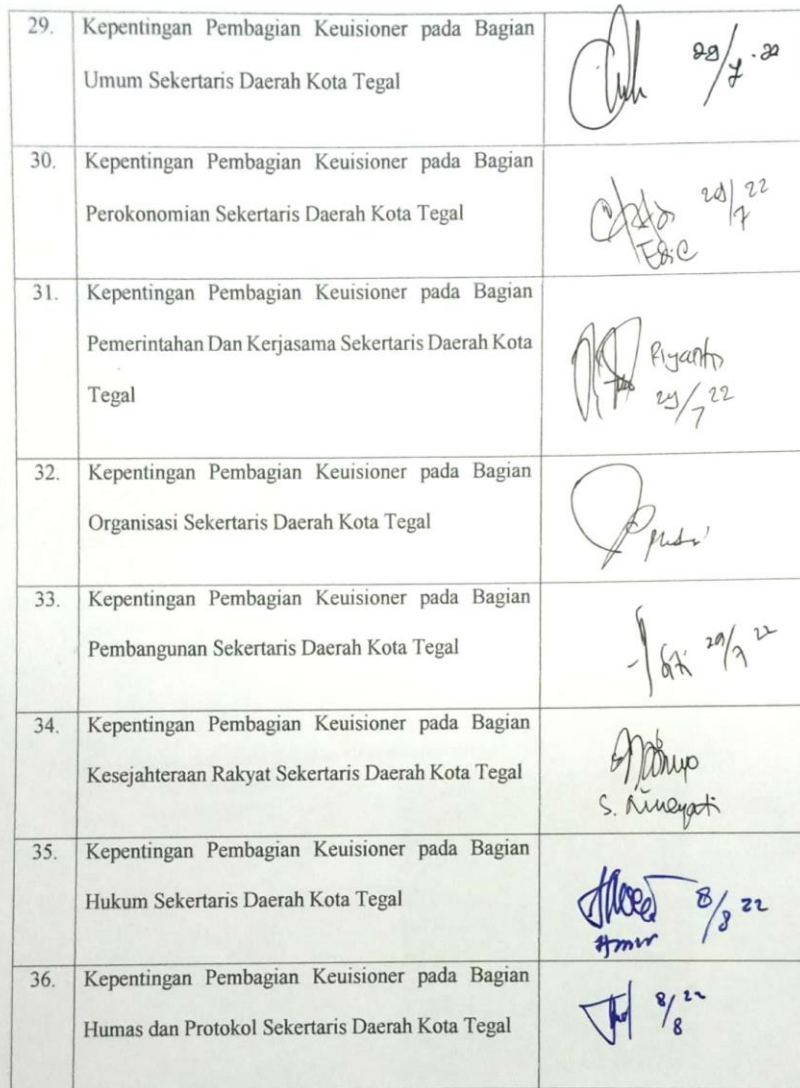 29. Kepentingan Pembagian Keuisioner pada Bagian
Umum Sekertaris Daerah Kota Tegal
29/7 - 22
30. Kepentingan Pembagian Keuisioner pada Bagian
Perokonomian Sekertaris Daerah Kota Tegal
29/7 22
31. Kepentingan Pembagian Keuisioner pada Bagian
Pemerintahan Dan Kerjasama Sekertaris Daerah Kota
Tegal
Riyanto
29/7 22
32. Kepentingan Pembagian Keuisioner pada Bagian
Organisasi Sekertaris Daerah Kota Tegal
33. Kepentingan Pembagian Keuisioner pada Bagian
Pembangunan Sekertaris Daerah Kota Tegal
29/7 22
34. Kepentingan Pembagian Keuisioner pada Bagian
Kesejahteraan Rakyat Sekertaris Daerah Kota Tegal
S.
35. Kepentingan Pembagian Keuisioner pada Bagian
Hukum Sekertaris Daerah Kota Tegal
8/8 22
36. Kepentingan Pembagian Keuisioner pada Bagian
Humas dan Protokol Sekertaris Daerah Kota Tegal
8/8 22